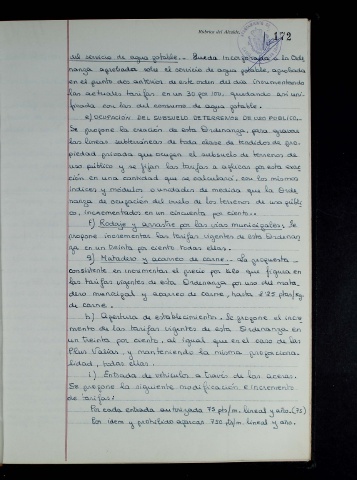 Rúbrica del Alcalde,
172
del servicio de agua potable. Queda incorporada a la Orde
nanza aprobada sobre el servicio de agua potable, aprobada
en el punto dos anterior de este orden del día incrementando
las actuales tarifas en un 30 por 100, quedando así uni-
ficada con las del consumo de agua potable.
e) OCUPACION DEL SUBSUELO DE TERRENOS DE USO PUBLICO.
Se propone la creación de esta Ordenanza, para gravar
las líneas subterráneas de toda clase de tendidos de pro-
piedad privada que ocupen el subsuelo de terrenos de
uso público y se fijan las tarifas a aplicar por esta exac
ción en una cantidad que se calculará con los mismos
índices y módulos o unidades de medida que la Orde
nanza de ocupación del suelo de los terrenos de uso públi
co, incrementados en un cincuenta por ciento.
f) Rodaje y arrastre por las vías municipales. Se
propone incrementar las tarifas vigentes de esta Ordenan
za en un treinta por ciento todas ellas.
g) Matadero y acarreo de carne. La propuesta
consistente en incrementar el precio por kilo que figura en
las tarifas vigentes de esta Ordenanza por uso del mata
dero municipal y acarreo de carne, hasta 4'25 ptas/kg.
de carne.
h) Apertura de establecimientos. Se propone el incre
mento de las tarifas vigentes de esta Ordenanza en
un treinta por ciento, al igual que en el caso de las
Plus Valías, y manteniendo la misma proporciona-
lidad, todas ellas.
i) Entrada de vehículos a través de las aceras.
Se propone la siguiente modificación e incremento
de tarifas:
Por cada entrada autorizada 75 pts/m. lineal y año. (75)
Por idem y prohibido aparcar 750 pts/m. lineal y año.